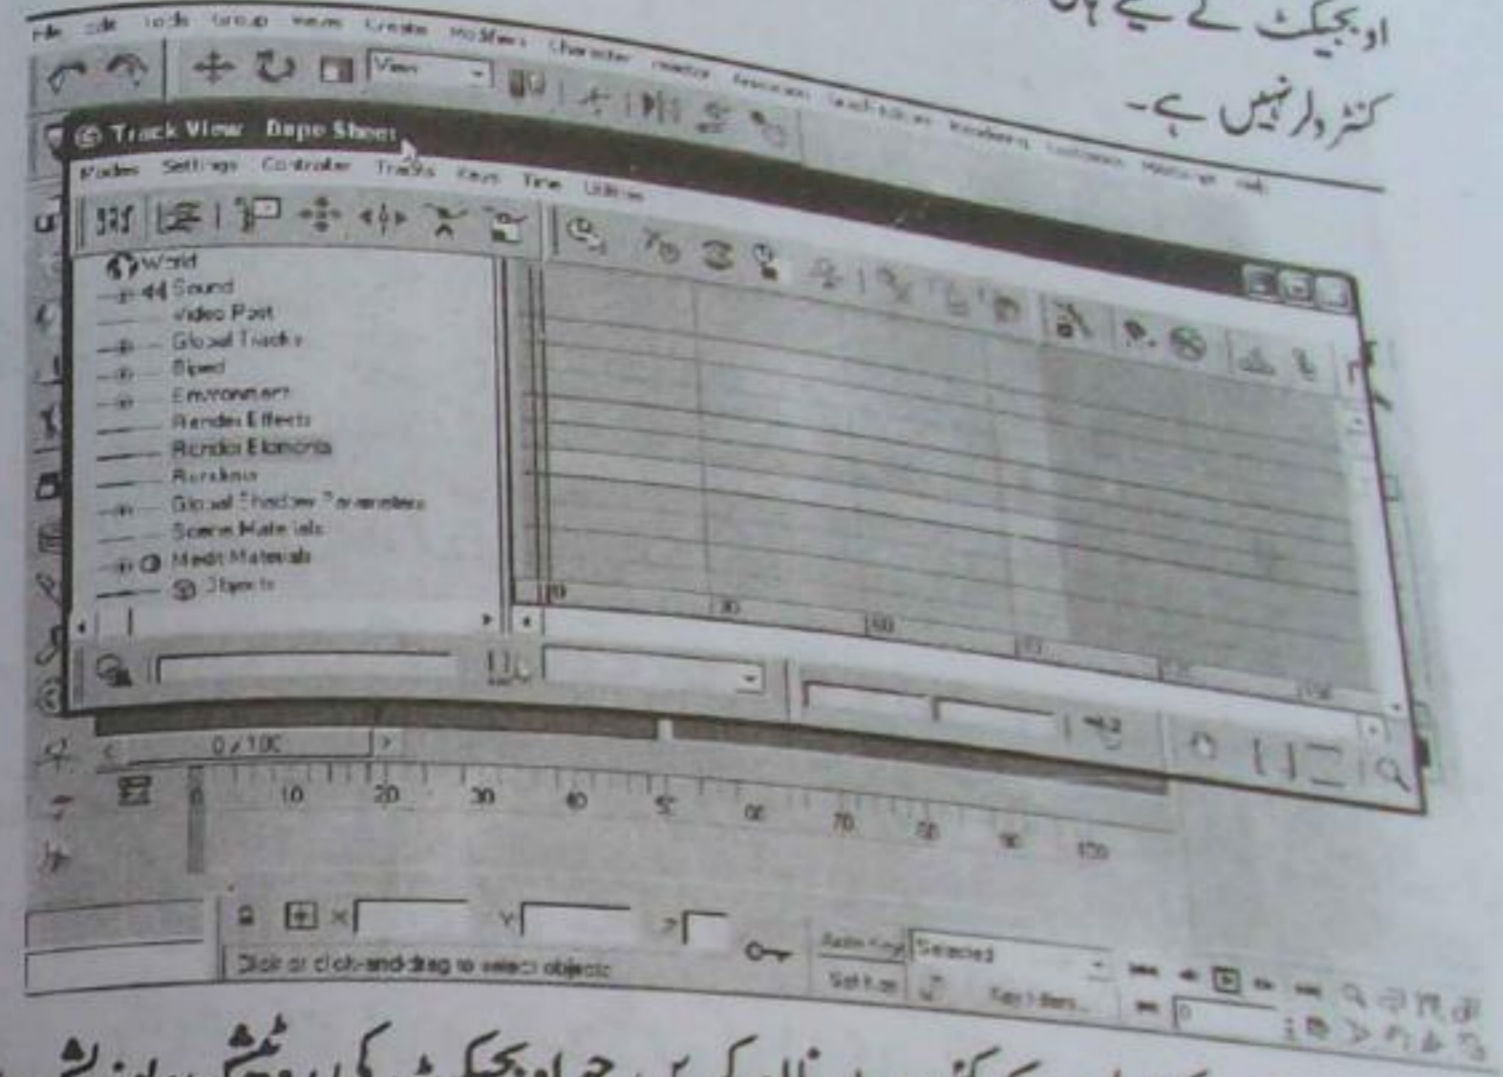 اوبجیکٹ کے لیے
کنٹرولر نہیں ہے۔
File Edit Tools Group Views Create Modifiers Character reactor Animation Graph Editors Rendering Customize MAXScript Help
View
Track View - Dope Sheet
Modes Settings Controller Tracks Keys Time Utilities
World
Sound
Video Post
Global Tracks
Biped
Environment
Render Effects
Render Elements
Renderer
Global Shadow Parameters
Scene Materials
Medit Materials
Objects
0 30 60
0 / 100
0 10 20 30 40 50 60 70 80 90 100
X: Y: Z:
Auto Key Selected
Click or click-and-drag to select objects
Set Key Key Filters... 0
کریں جو اوبجیکٹ کی